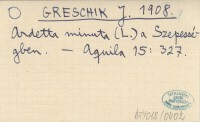 GRESCHIK J. 1908.
Ardetta minuta (L.) a Szepessé-
gben. — Aquila 15: 327.